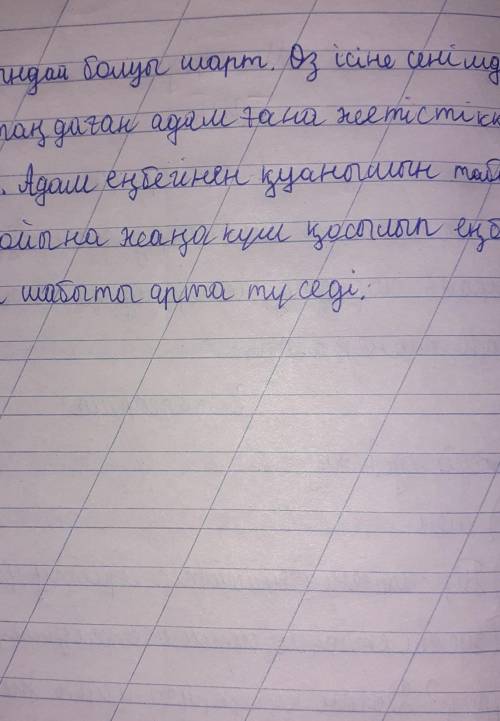 ындай болуы шарт. Өз ісіне сенімд
таңдаған адам ғана жетістікк
. Адам еңбейнен қуанышын таб
ойына жаңа күш қосылып еңб
шабыты арта түседі.